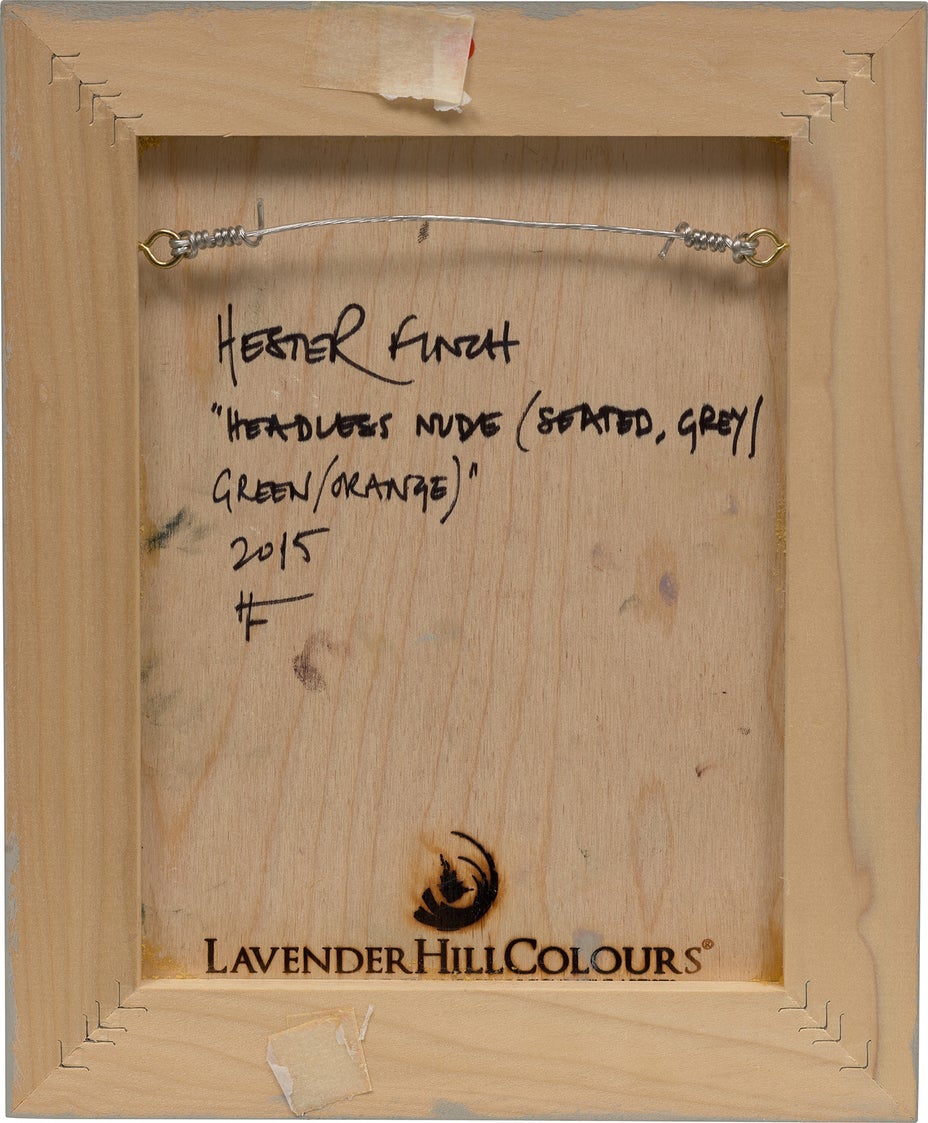 HESTER FINCH
"HEADLESS NUDE (SEATED, GREY/
GREEN/ORANGE)"
2015
HF
LAVENDERHILLCOLOURS®